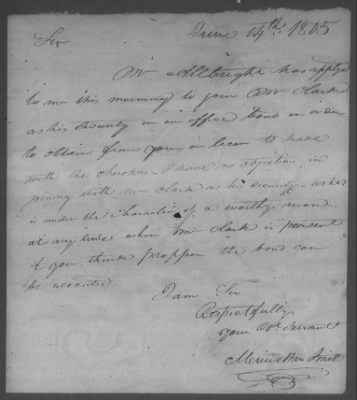 June 14th 1815
Sir
Mr Allbright has applyd
to me this morning to join Mr Clark
as his Security in an office bond in order
to obtain from you a license to trade
with the Cherokees I have no objection in
joining with Mr Clark as his security as he
is under the Character of a worthy man
at any time when Mr Clark is present
if you think propper the bond can
be executed
I am Sir
Respectfully
your Obt Servant
Meriwether Smith